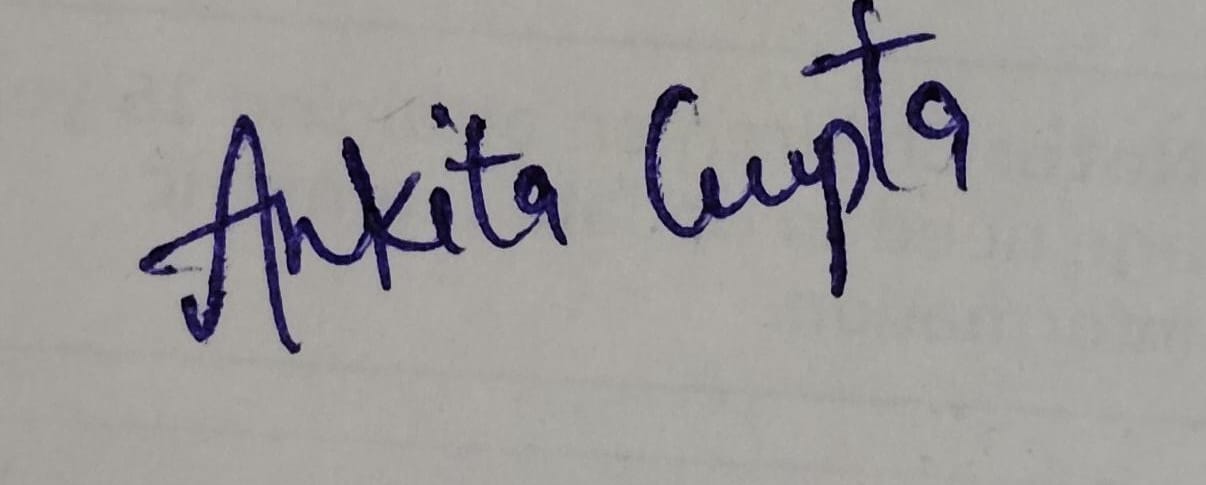 Ankita Gupta